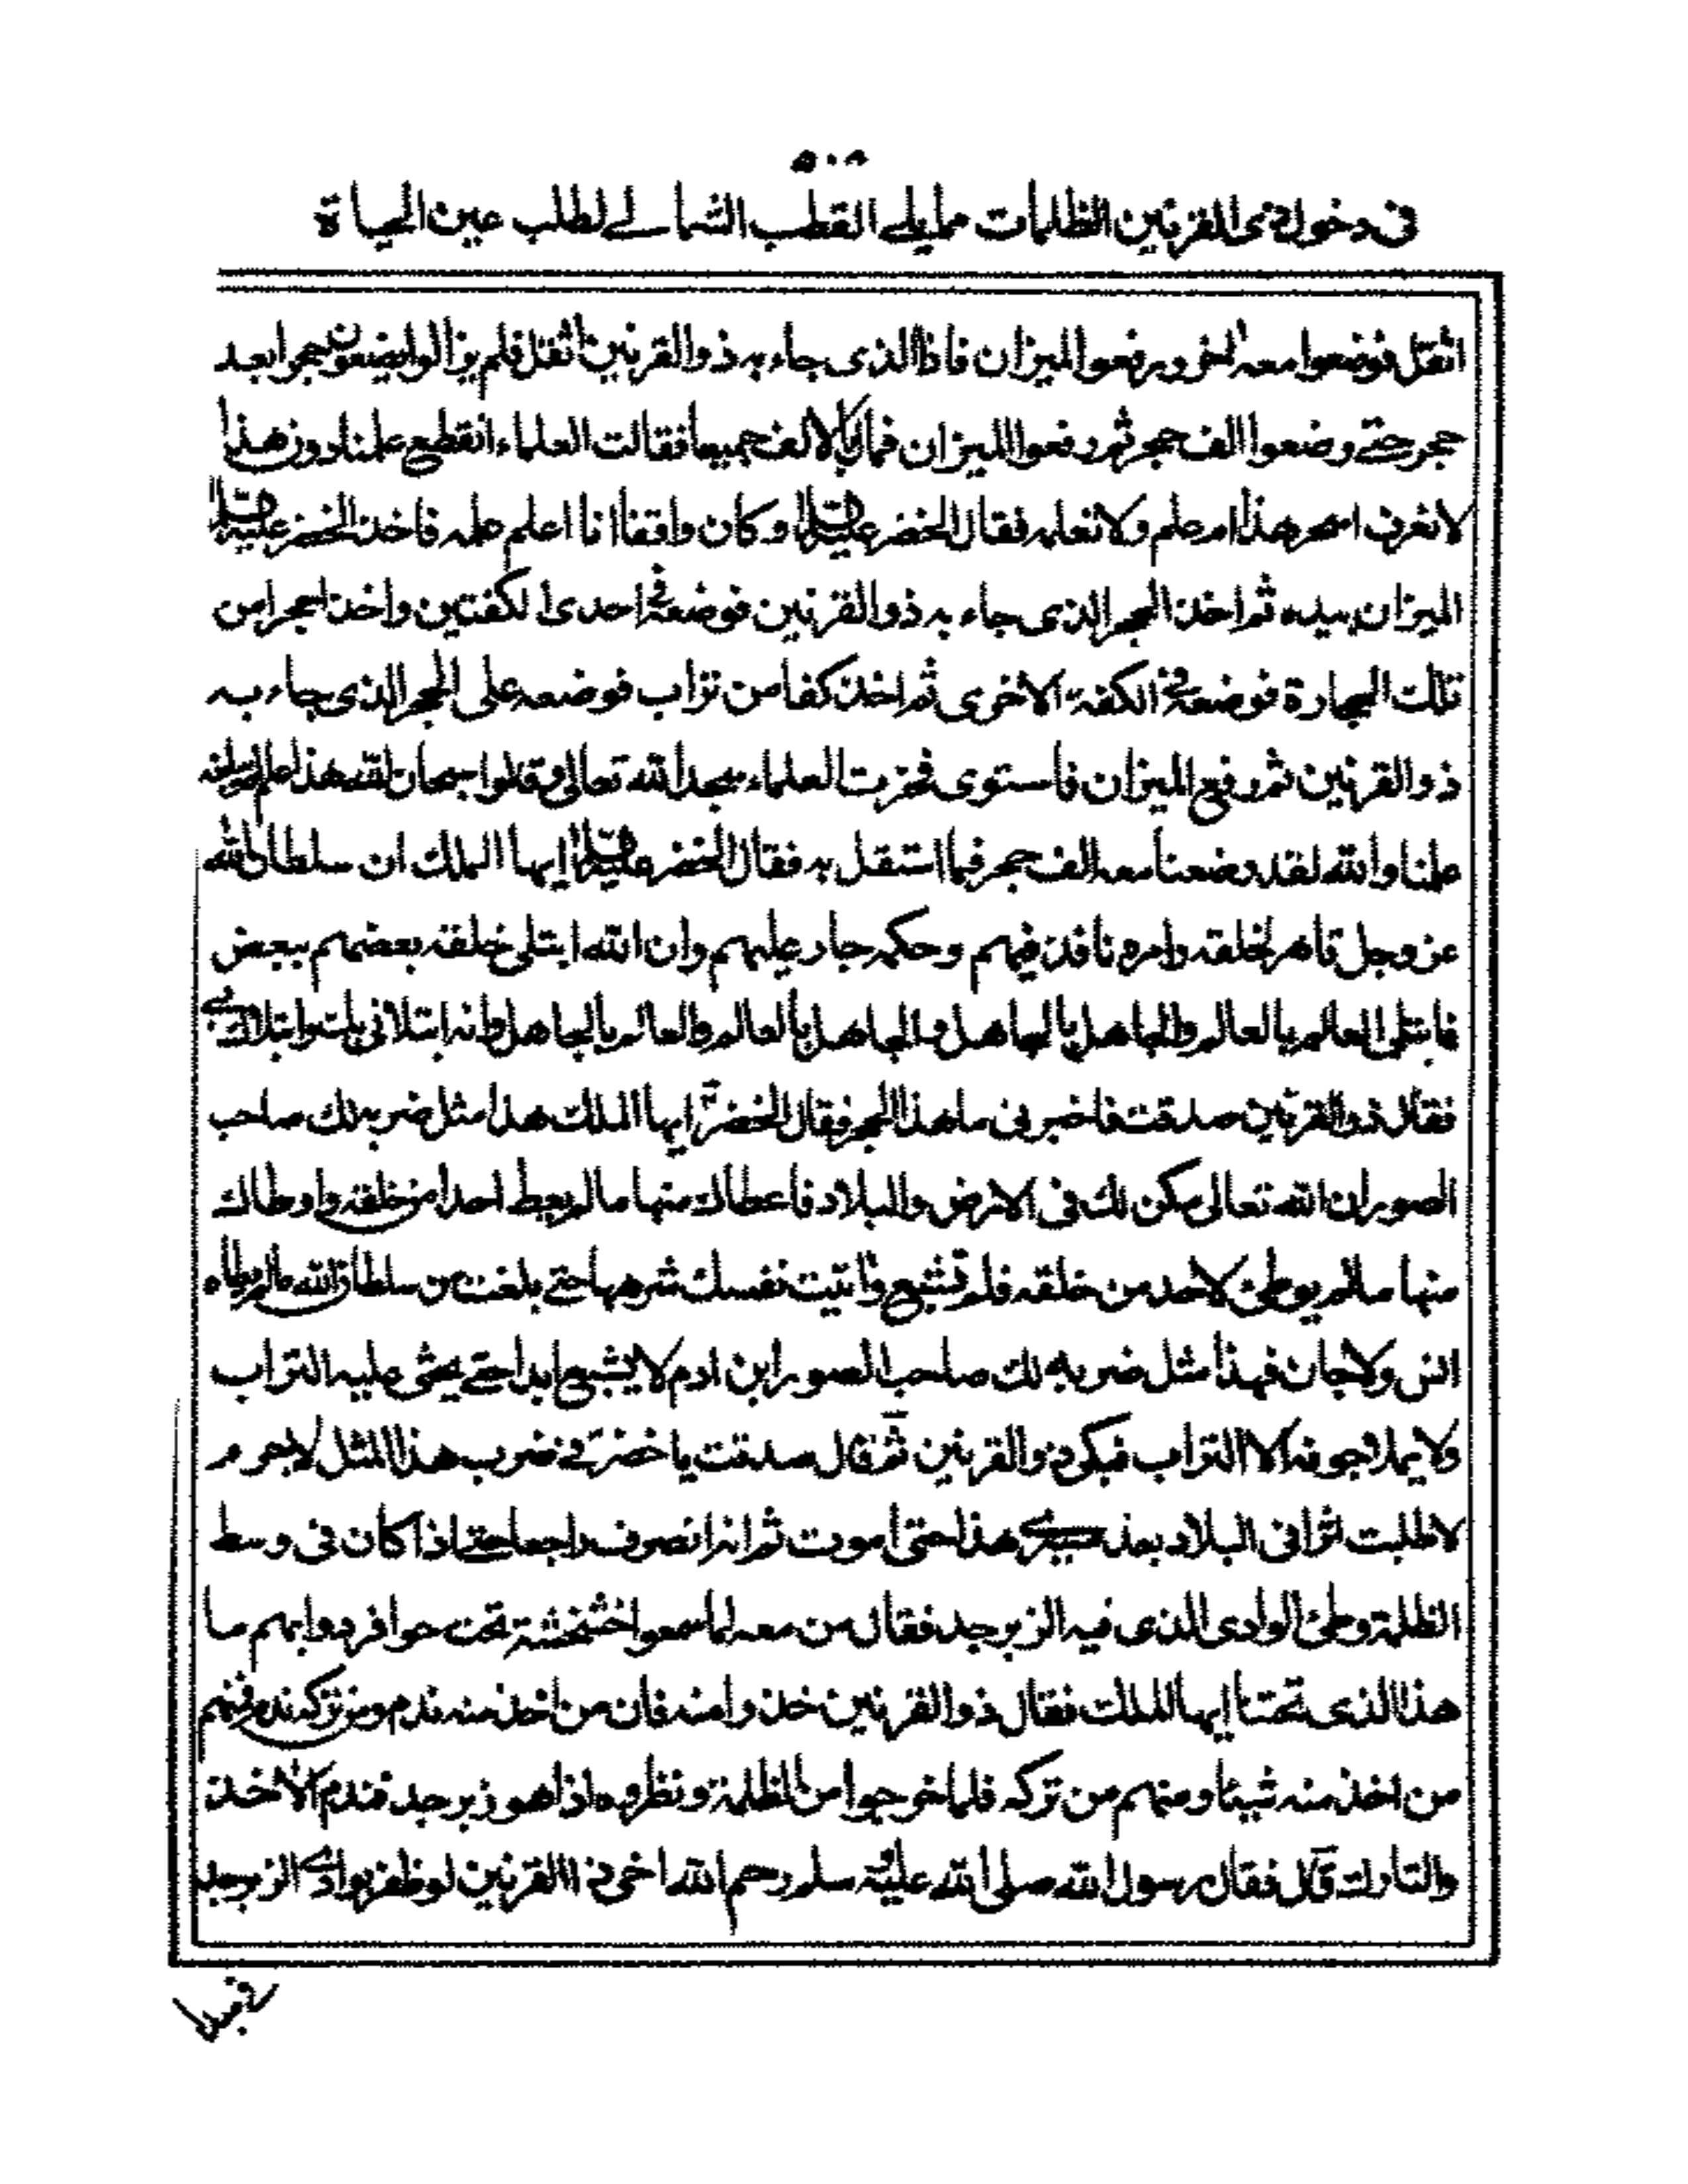 ٥٠٨
فى دخول ذى القرنين الظلمات مما يلى القطب الشمالے لطلب عين الحياة
اثقل فوضعوا معه اخر ورفعوا الميزان فاذا الذى جاء به ذوالقرنين اثقل فلم يزالوا يضعون حجرا بعد
حجر حتے وضعوا الف حجر ثم رفعوا الميزان فمال بالالف جميعا فقالت العلماء انقطع علمنا دون هذا
لا نعرف اسحر هذا ام علم ولا نعلمه فقال الخضر عليه السلام وكان واقفا انا اعلم علمه فاخذ الخضر عليه السلام
الميزان بيده ثم اخذ الحجر الذى جاء به ذوالقرنين فوضعه فے احدى الكفتين واخذ حجرا من
تلك الحجارة فوضعه فے الكفة الاخرى ثم اخذ كفا من تراب فوضعه على الحجر الذى جاء به
ذوالقرنين ثم رفع الميزان فاستوى فخرت العلماء سجدا لله تعالى وقالوا سبحان الله هذا علم لم يبلغه
علمنا والله لقد وضعنا معه الف حجر فما استقل به فقال الخضر عليه السلام ايها الملك ان سلطان الله
عز وجل قاهر لخلقه وامره نافذ فيهم وحكمه جار عليهم وان الله ابتلى خلقه بعضهم ببعض
فابتلى العالم بالعالم والجاهل بالجاهل والجاهل بالعالم والعالم بالجاهل وانه ابتلانى بك وابتلاك بے
فقال ذوالقرنين صدقت فاخبرنى ما هذا الحجر فقال الخضرؑ ايها الملك هذا مثل ضربه لك صاحب
الصور ان الله تعالى مكن لك فى الارض والبلاد فاعطاك منها ما لم يعط احدا من خلقه واوطاك
منها ما لم يوطئ لاحد من خلقه فلم تشبع واتيت نفسك شرهها حتے بلغت من سلطان الله ما لم يطاه
انس ولا جان فهذا مثل ضربه لك صاحب الصور ابن ادم لا يشبع ابدا حتے يحثى عليه التراب
ولا يملا جوفه الا التراب فبكى ذوالقرنين ثم قال صدقت يا خضرؑ فے ضرب هذا المثل لا جرم
لا طلبت اثرا فى البلاد بعد مسيرى هذا حتى اموت ثم انه انصرف راجعا حتے اذا كان فى وسط
الظلمة وطئ الوادى الذى فيه الزبرجد فقال من معه لما سمعوا خشخشة تحت حوافر دوابهم ما
هذا الذى تحتنا ايها الملك فقال ذوالقرنين خذوا منه فان من اخذ منه ندم ومن تركه ندم فمنهم
من اخذ منه شيئا ومنهم من تركه فلما خرجوا من الظلمة ونظروه اذا هو زبرجد فندم الاخذ
والتارك قال فقال رسول الله صلى الله عليه وسلم رحم الله اخى ذا القرنين لو ظفر بوادى الزبرجد